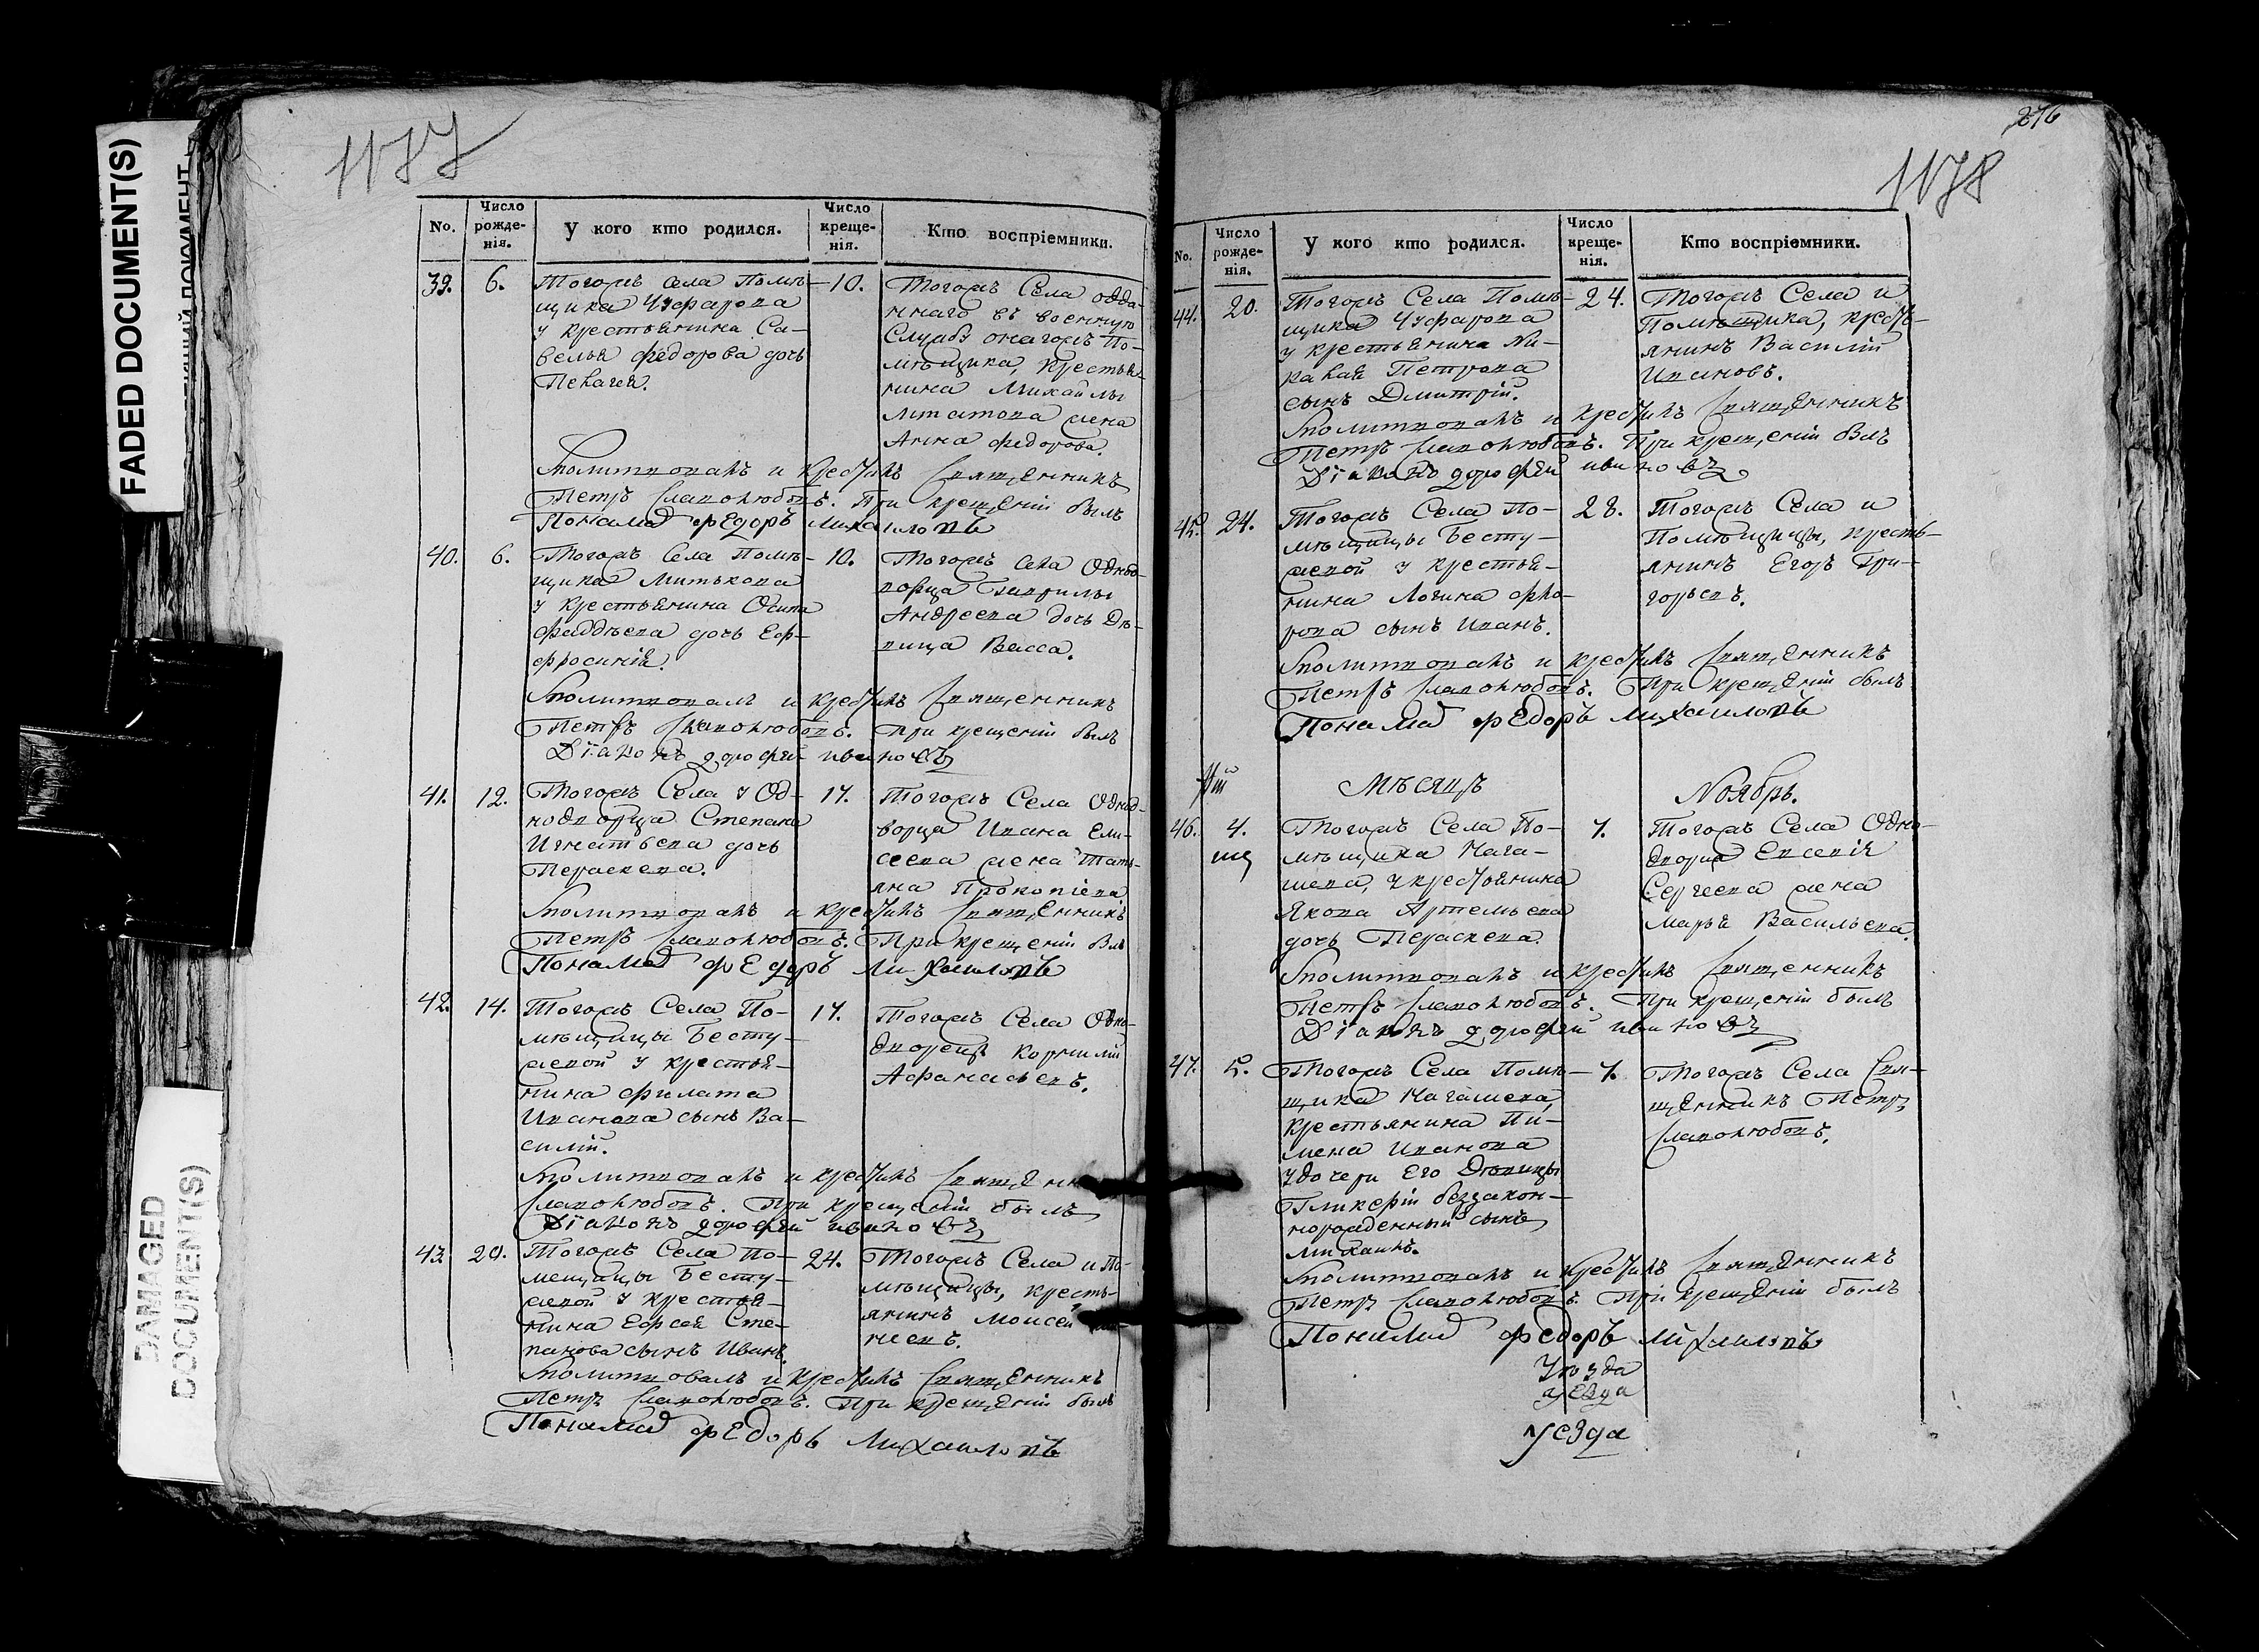 FADED DOCUMENT(S)
DAMAGED
DOCUMENT(S)
1177
No.
Число рожде-нія.
У кого кто родился.
Число креще-нія.
Кто воспріемники.
39. 6. 10.
Тогожъ села Помѣ-
щика
у крестьянина Са-
велья Федорова дочь
Пелагея.
Тогожъ Села отда-
ннаго въ военную
Службу онагожъ По-
мѣщика, крестья-
нина Михайлы
жена
Анна Федорова.
Молитвовалъ и крестилъ Священникъ
Петръ Славолюбовъ. При крещеніи былъ
Понамарь Федоръ Михаиловъ
40. 6. 10.
Тогожъ Села Помѣ-
щика Митькова
у крестьянина Осипа
Фаддѣева дочь Еф-
фросинія.
Тогожъ села Однод-
ворца Гаврилы
Андреева дочь Дѣ-
вица Васса.
Молитвовалъ и крестилъ Священникъ
Петръ Славолюбовъ. При крещеніи былъ
Діаконъ дорофей ивановъ
41. 12. 17.
Тогожъ Села у Од-
нодворца Степана
Игнатьева дочь
Параскева.
Тогожъ Села Однод-
ворца Ивана Ели-
сеева жена Тать-
яна Прокопіева
Молитвовалъ и крестилъ Священникъ
Петръ Славолюбовъ. При крещеніи былъ
Понамарь Федоръ Михаиловъ
42. 14. 17.
Тогожъ Села По-
мѣщицы Бесту-
жевой у крестья-
нина Филата
Иванова сынъ Ва-
силій.
Тогожъ Села Одно-
дворецъ Корнилій
Афанасьевъ.
Молитвовалъ и крестилъ
Славолюбовъ. При крещеніи былъ
Діаконъ дорофей ивановъ
43. 20. 24.
Тогожъ Села По-
мещицы Бесту-
жевой у крестья-
нина Ефсея Сте-
панова сынъ Иванъ.
Тогожъ Села и По-
мѣщицы, кресть-
янинъ Моисей
Молитвовалъ и крестилъ Священникъ
Петръ Славолюбовъ. При крещеніи былъ
Понамарь Федоръ Михаиловъ
276
1178
No.
Число рожде-нія.
У кого кто родился.
Число креще-нія.
Кто воспріемники.
44. 20. 24.
Тогожъ Села Помѣ-
щика
у крестьянина Ни-
колая Петрова
сынъ Дмитрій.
Тогожъ Села и
Помѣщика, кресть-
янинъ Василій
Ивановъ.
Молитвовалъ и крестилъ Священникъ
Петръ Славолюбовъ. При крещеніи былъ
Діаконъ дорофей ивановъ
45. 24. 28.
Тогожъ Села По-
мѣщицы Бесту-
жевой у крестья-
нина Логина Фло-
рова сынъ Иванъ.
Тогожъ Села и
Помѣщицы, кресть-
янинъ Егоръ Гри-
горьевъ.
Молитвовалъ и крестилъ Священникъ
Петръ Славолюбовъ. При крещеніи былъ
Понамарь Федоръ Михаиловъ
Мѣсяцъ Ноябрь.
46. 4. 7.
Тогожъ Села По-
мѣщика
у крестьянина
Якова Артемьева
дочь Параскева.
Тогожъ Села Одно-
дворца Евсевія
Сергеева жена
Марья Васильева.
Молитвовалъ и крестилъ Священникъ
Петръ Славолюбовъ. При крещеніи былъ
Діаконъ дорофей ивановъ
47. 5. 7.
Тогожъ Села Помѣ-
щика
крестьянина Пи-
мена Иванова
у дочери Его Дѣвицы
Гликеріи беззакон-
норожденный сынъ
Михаилъ.
Тогожъ Села Свя-
щенникъ Петръ
Славолюбовъ.
Молитвовалъ и крестилъ Священникъ
Петръ Славолюбовъ. При крещеніи былъ
Понамарь Федоръ Михаиловъ
уезда